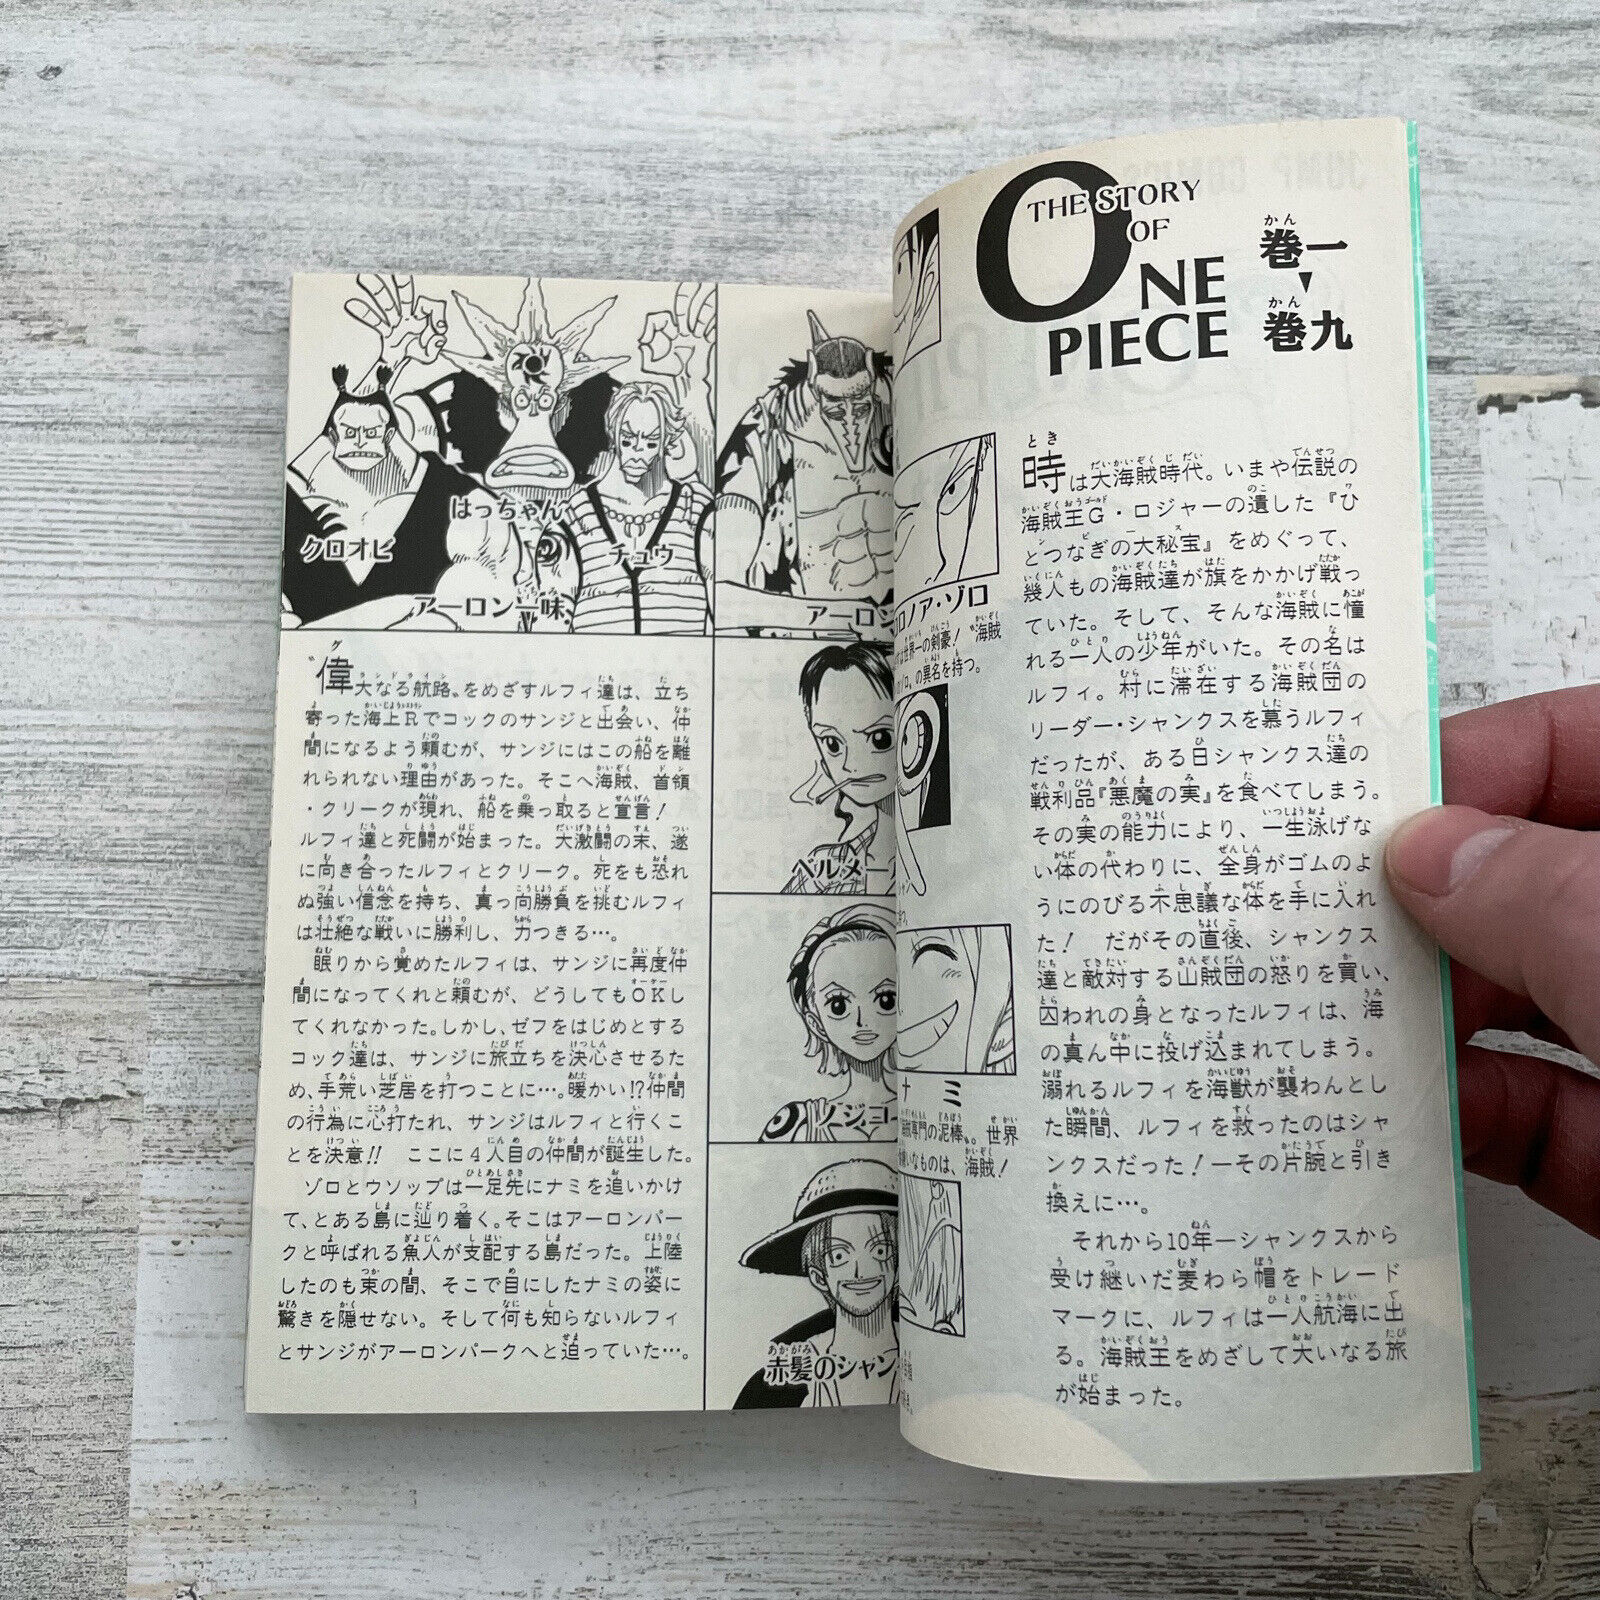 THE STORY
OF
ONE
PIECE
巻一
巻九
時は大海賊時代。いまや伝説の
海賊王G・ロジャーの遺した『ひ
とつなぎの大秘宝』をめぐって、
幾人もの海賊達が旗をかかげ戦っ
ていた。そして、そんな海賊に憧
れる一人の少年がいた。その名は
ルフィ。村に滞在する海賊団の
リーダー・シャンクスを慕うルフィ
だったが、ある日シャンクス達の
戦利品『悪魔の実』を食べてしまう。
その実の能力により、一生泳げな
い体の代わりに、全身がゴムのよ
うにのびる不思議な体を手に入れ
た! だがその直後、シャンクス
達と敵対する山賊団の怒りを買い、
囚われの身となったルフィは、海
の真ん中に投げ込まれてしまう。
溺れるルフィを海獣が襲わんとし
た瞬間、ルフィを救ったのはシャ
ンクスだった!―その片腕と引き
換えに…。
それから10年―シャンクスから
受け継いだ麦わら帽をトレード
マークに、ルフィは一人航海に出
る。海賊王をめざして大いなる旅
が始まった。
ロノア・ゾロ
は世界一の剣豪! 海賊
ゾロ〟の異名を持つ。
ナミ
専門の泥棒〟。世界
いなものは、海賊!
クロオビ
はっちゃん
チュウ
アーロン一味
アーロン
ベルメー
ノジコ
赤髪のシャン
〝偉大なる航路〟をめざすルフィ達は、立ち
寄った海上Rでコックのサンジと出会い、仲
間になるよう頼むが、サンジにはこの船を離
れられない理由があった。そこへ海賊、首領
・クリークが現れ、船を乗っ取ると宣言!
ルフィ達と死闘が始まった。大激闘の末、遂
に向き合ったルフィとクリーク。死をも恐れ
ぬ強い信念を持ち、真っ向勝負を挑むルフィ
は壮絶な戦いに勝利し、力つきる…。
眠りから覚めたルフィは、サンジに再度仲
間になってくれと頼むが、どうしてもOKし
てくれなかった。しかし、ゼフをはじめとする
コック達は、サンジに旅立ちを決心させるた
め、手荒い芝居を打つことに…。暖かい!?仲間
の行為に心打たれ、サンジはルフィと行くこ
とを決意!! ここに4人目の仲間が誕生した。
ゾロとウソップは一足先にナミを追いかけ
て、とある島に辿り着く。そこはアーロンパー
クと呼ばれる魚人が支配する島だった。上陸
したのも束の間、そこで目にしたナミの姿に
驚きを隠せない。そして何も知らないルフィ
とサンジがアーロンパークへと迫っていた…。